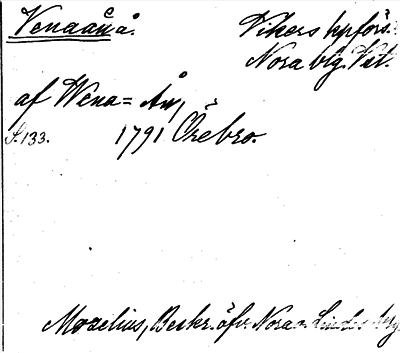 Venaånå.
Vikers kpförs.
Nora blg. Vstl.
af Wena=Ån,
S. 133. 1791 Örebro.
Moxelius, Beskr. öfv. Nora o. Lindes berg